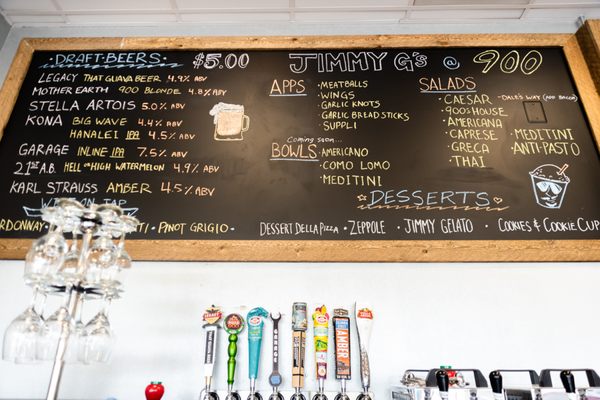 DRAFT BEERS $5.00
LEGACY THAT GUAVA BEER 4.9% ABV
MOTHER EARTH 900 BLONDE 4.8% ABV
STELLA ARTOIS 5.0% ABV
KONA BIG WAVE 4.4% ABV
HANALEI IPA 4.5% ABV
GARAGE INLINE IPA 7.5% ABV
21ST A.B. HELL OR HIGH WATERMELON 4.9% ABV
KARL STRAUSS AMBER 4.5% ABV
ON TAP
PINOT GRIGIO
JIMMY G's @ 900
APPS
MEATBALLS
WINGS
GARLIC KNOTS
GARLIC BREAD STICKS
SUPPLI
Coming soon...
BOWLS
AMERICANO
COMO LOMO
MEDITINI
SALADS
CAESAR
900-HOUSE
AMERICANA
CAPRESE
GRECA
THAI
DALE'S WAY (ADD BACON)
MEDITINI
ANTI-PASTO
DESSERTS
DESSERT DELLA PIZZA • ZEPPOLE • JIMMY GELATO • COOKIES & COOKIE CUP
GARAGE
AMBER